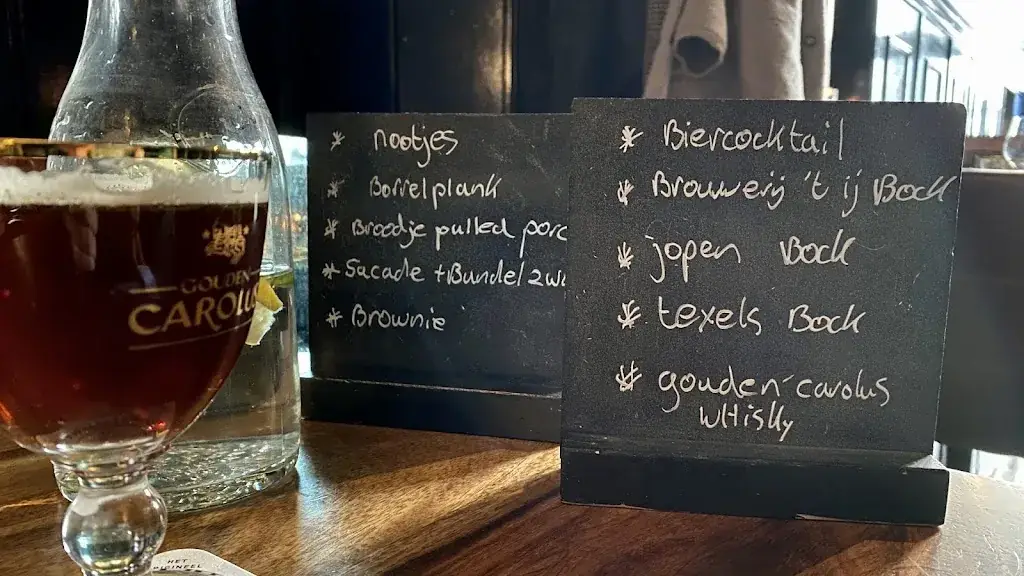 GOUDEN
CAROLUS
* nootjes
* Borrelplank
* Broodje pulled porc
* Sacade + Bundel zw
* Brownie
* Biercocktail
* Brouwerij 't ij Bock
* jopen Bock
* texels Bock
* gouden-carolus
whisky
HET